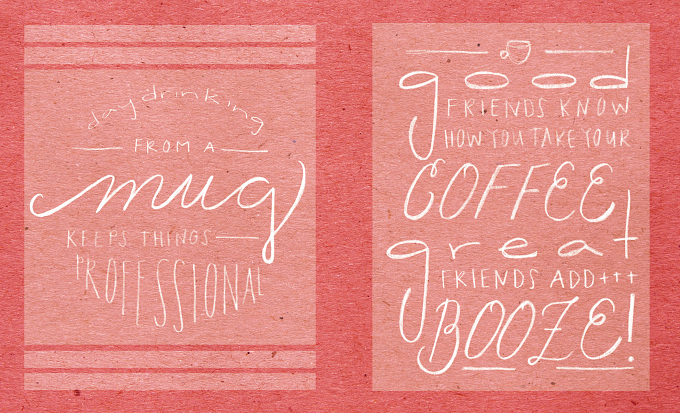 day drinking
FROM A
mug
KEEPS THINGS
PROFESSIONAL
good
FRIENDS KNOW
HOW YOU TAKE YOUR
COFFEE
great
FRIENDS ADD+++
BOOZE!